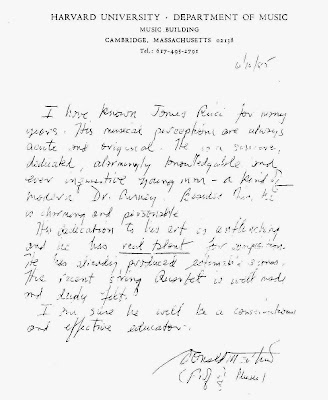 HARVARD UNIVERSITY · DEPARTMENT OF MUSIC
MUSIC BUILDING
CAMBRIDGE, MASSACHUSETTS 02138
Tel.: 617-495-2791
I have known James Ricci for many
years. His musical perceptions are always
acute and original. He is a
dedicated, alarmingly knowledgable and
ever inquisitive young man - a kind of
modern Dr. Burney. Besides this, he
is charming and personable
His dedication to his art is unflinching
and he has real talent for composition.
He has already produced estimable scores.
His recent String Quartet is well made
and deeply felt.
I am sure he will be a conscientious
and effective educator.
Donald Martino
(Prof of Music)